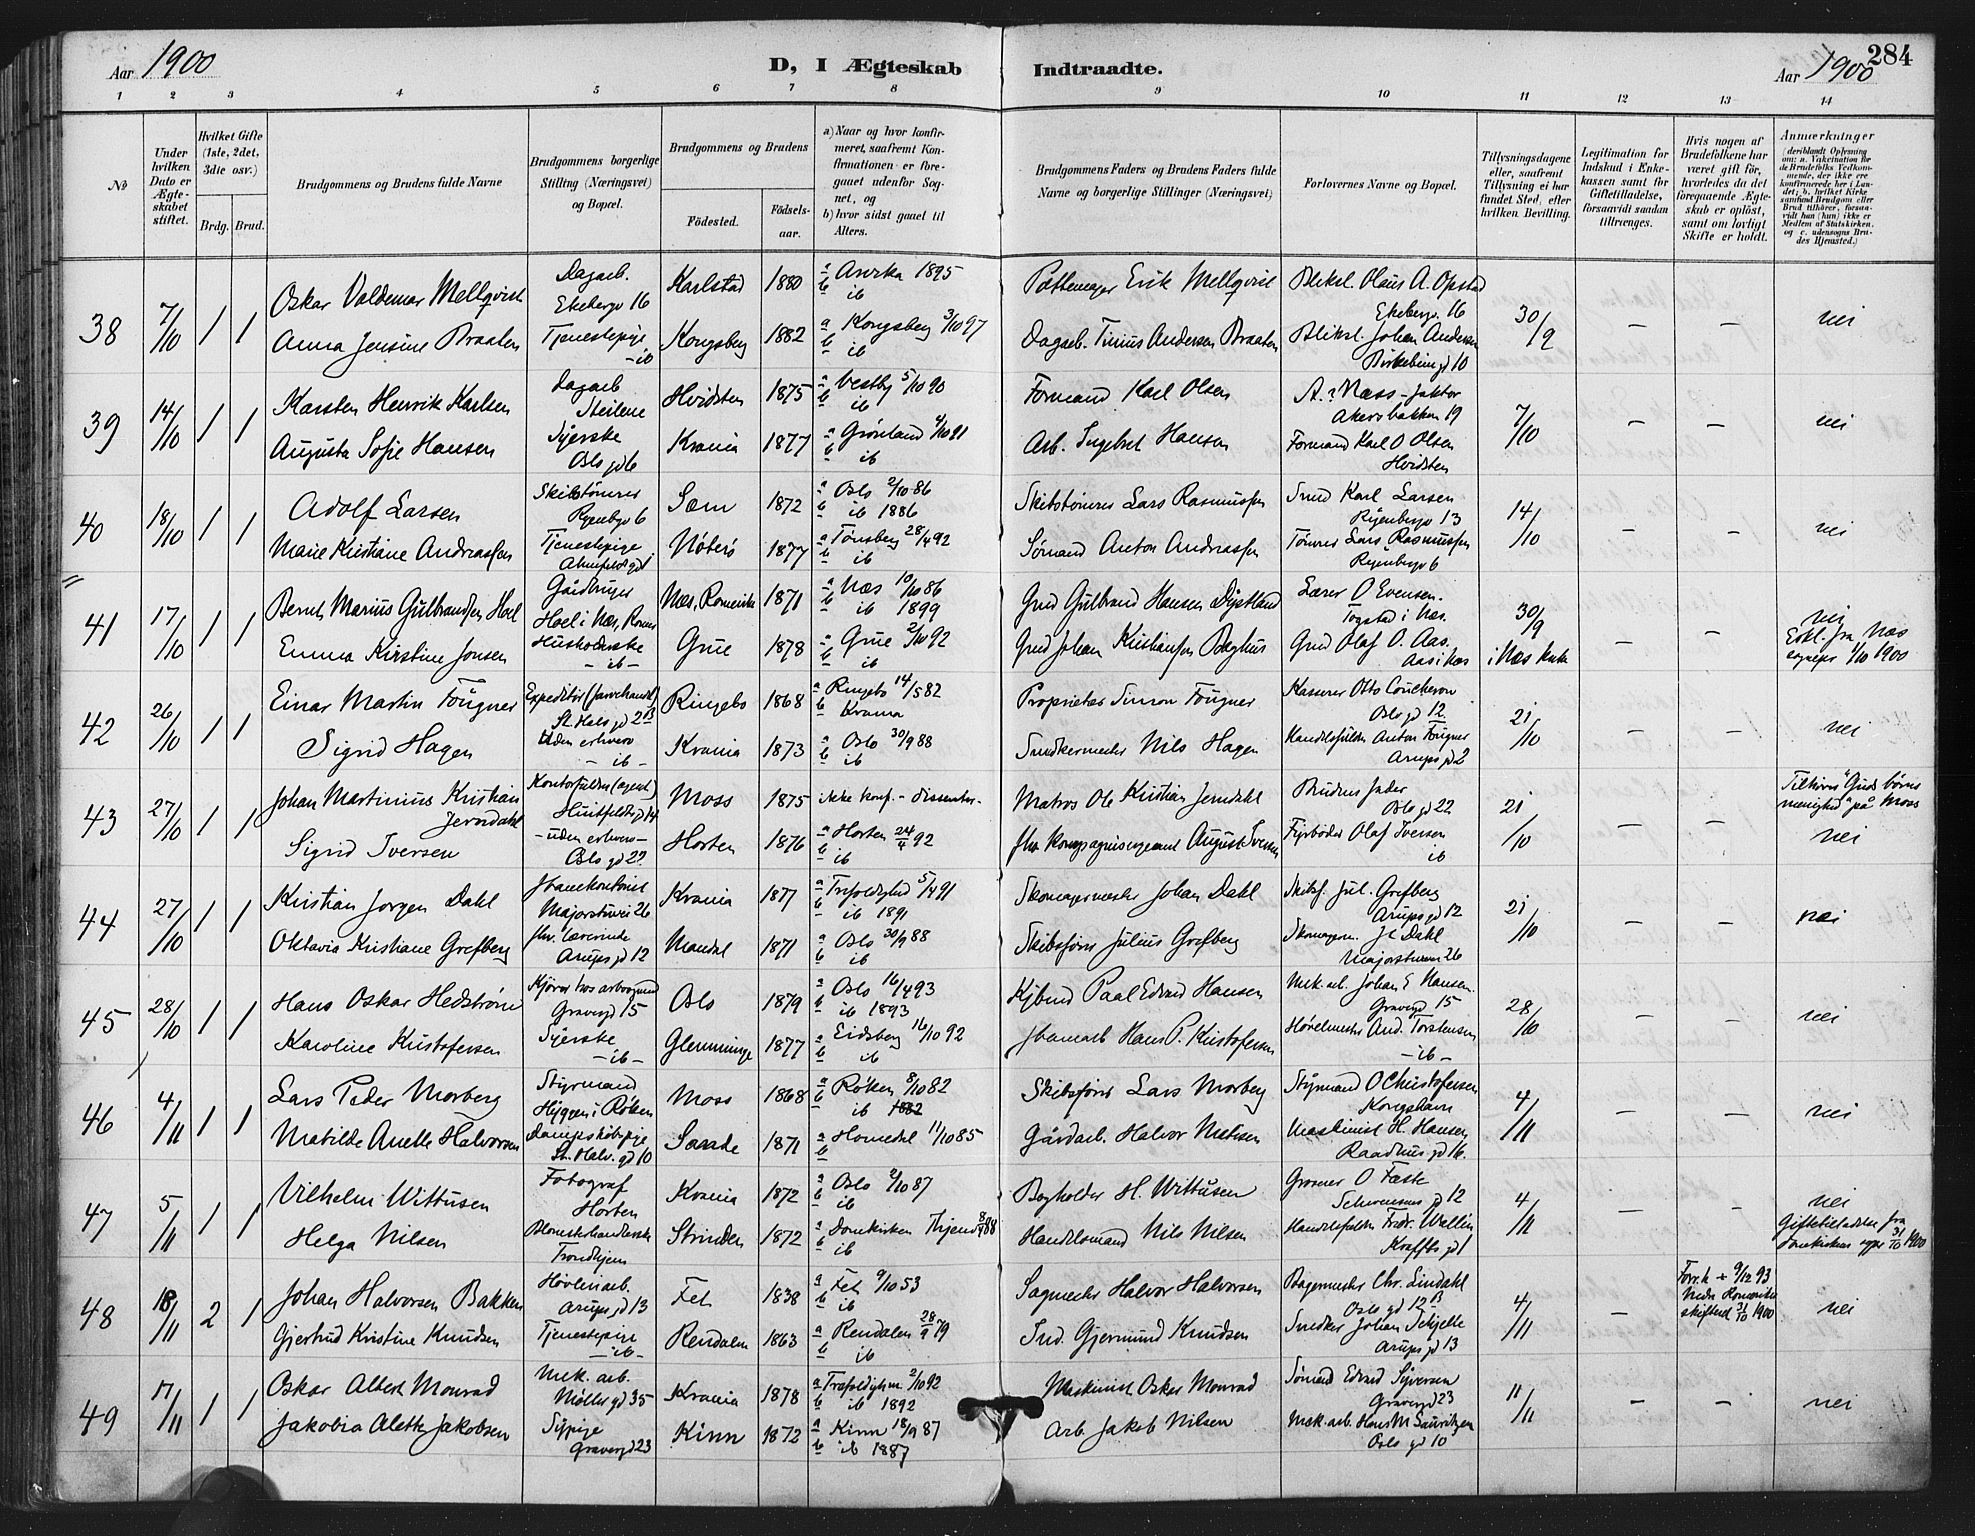 284
Aar 1900
D, I Ægteskab Indtraadte.
Aar 1900
1 2 3 4 5 6 7 8 9 10 11 12 13 14
No
Under hvilken Dato er Ægteskabet stiftet.
Hvilket Gifte (1ste, 2det, 3die osv.)
Brdg. Brud.
Brudgommens og Brudens fulde Navne
Brudgommens borgerlige Stilling (Næringsvei) og Bopæl.
Brudgommens og Brudens
Fødested. Fødselsaar.
a) Naar og hvor konfirmeret, saafremt Konfirmationen er foregaaet udenfor Sognet, og
b) hvor sidst gaaet til Alters.
Brudgommens Faders og Brudens Faders fulde Navne og borgerlige Stillinger (Næringsvei)
Forlovernes Navne og Bopæl.
Tillysningsdagene eller, saafremt Tillysning ei har fundet Sted, efter hvilken Bevilling.
Legitimation for Indskud i Enkekassen samt for Giftetilladelse, forsaavidt saadan tiltrænges.
Hvis nogen af Brudefolkene har været gift før, hvorledes da det foregaaende Ægteskab er opløst, samt om lovligt Skifte er holdt.
Anmærkninger (deriblandt Oplysning om: a. Vakcination for de Brudefolks Vedkommende, der ikke ere konfirmerede her i Landet; b. hvilket Kirkesamfund Brudgom eller Brud tilhører, forsaavidt han (hun) ikke er Medlem af Statskirken, og c. udensogns Brudes Hjemsted.)
38 7/10 1 1 Oskar Valdemar Mellqvist Dagarb. Ekebergv 16 Karlstad 1880 a Arvika 1895 b ib Pottemager Erik Mellqvist Bliksl. Olaus A. Opstad Ekebergv. 16 30/9 — — nei
Anna Jensine Braaten Tjenestepige — ib Kongsberg 1882 a Kongsberg 3/10 97 b ib Dagarb. Tinius Andersen Braaten Bliksl. Johan Andersen Birkebeingd 10
39 14/10 1 1 Karsten Henrik Karlsen Dagarb Steilene Hvidsten 1875 a Vestby 5/10 90 b ib Formand Karl Olsen A. Næss - faktor Akersbakken 19 7/10 — — nei
Augusta Sofie Hansen Syerske Oslo gd 6 Krania 1877 a Grønland 4/10 91 b ib Arb. Ingebret Hansen Formand Karl O Olsen Hvidsten
40 18/10 1 1 Adolf Larsen Skibstømrer Ryenbgv 6 Sem 1872 a Oslo 2/10 86 b ib 1886 Skibstømrer Lars Rasmussen Smed Karl Larsen Ryenbergv 13 14/10 — — nei
Marie Kristiane Andreassen Tjenestepige Nøterø 1877 a Tønsberg 28/4 92 b ib Sømand Anton Andreassen Tømrer Lars Rasmussen Ryenbergv 6
41 17/10 1 1 Bernt Marius Gulbrandsen Hoel Gårdbruger Hoel i Næs, Romer Næs, Romerike 1871 a Næs 10/10 86 b ib 1899 Grd Gulbrand Hansen Dystland Lærer O Evensen. Togstad i Næs. 30/9 i Næs kirke — — nei
Emma Kirstine Jonsen Husholderske — ib — Grue 1878 a Grue 2/10 92 b ib Grd Johan Kristiansen Baghus Grd Olaf O. Aas. Aas i Næs Erkl. fra Næs sognepr 1/10 1900
42 26/10 1 1 Einar Martin Fougner Expeditør (farvehandel) St. Halv gd 2 B Ringebo 1868 a Ringebo 14/5 82 b Krania Proprietær Simon Fougner Kasserer Otto Coucheron Oslo gd 12 21/10 — — nei
Sigrid Hagen Uden erhverv — ib — Krania 1873 a Oslo 30/9 88 b ib Snedkermester Nils Hagen Handelsfuldm Anton Fougner Arups gd 2
43 27/10 1 1 Johan Martinius Kristian Jerndahl Kontorfuldm (agent) Huitfeldts gd 14 Moss 1875 ikke konf. - dissenter - Matros Ole Kristian Jerndahl Brudens fader Oslo gd 22 21/10 — — Tilhører "Guds børns menighed" på Moss
Sigrid Iversen — uden erhverv — Oslo gd 22 Horten 1876 a Horten 24/4 92 b ib fhv. Kompagnisergeant August Iversen Fyrbøder Olaf Iversen ib nei
44 27/10 1 1 Kristian Jørgen Dahl Majorstuvei 26 Krania 1877 a Trefoldighed 5/4 91 b ib 1891 Skomagermester Johan Dahl Skibsf. Jul. Grefberg Arups gd 12 21/10 — — nei
Oktavia Kristiane Grefberg fhv. Lærerinde Arups gd 12 Mandal 1871 a Oslo 30/9 88 b ib Skibsfører Julius Grefberg Skomagerm. J. Dahl Majorstuvei 26
45 28/10 1 1 Hans Oskar Hedstrøm Kjører hos Gravergd 15 Oslo 1879 a Oslo 16/4 93 b ib 1893 Kjbmd Paal Edvard Hansen Mek. arb. Johan E Hansen. Gravergd 15 28/10 — — nei
Karoline Kristofersen Syerske — ib — Glemminge 1877 a Eidsberg 16/10 92 b ib Hans P. Kristofersen Høvelmester And. Torstensen — ib —
46 4/11 1 1 Lars Peder Morberg Styrmand Hyggen i Røken Moss 1868 a Røken 8/10 82 b ib 1882 Skibsfører Lars Morberg Styrmand O Christofersen Kongshavn 4/11 — — nei
Matilde Anette Halvorsen Dampskibspige St. Halv. gd 10 Sande 1871 a Homedal 11/10 85 b Gårdarb. Halvor Nielsen Maskinist H. Hansen Raadhus gd 16.
47 5/11 1 1 Vilhelm Wittusen Fotograf Horten Krania 1872 a Oslo 2/10 87 b ib Bogholder H. Wittusen Grosserer O Faste Schwensens gd 12 4/11 — — nei
Helga Nilsen Blomsterhandlerske Trondhjem Strinden 1872 a Domkirken Thjem 8/4 88 b ib Handelsmand Nils Nilsen Handelsfuldm Fredr. Wallin Kraffts gd 1 Giftetilladelse fra Domkirkens sgpr 31/10 1900
48 18/11 2 1 Johan Halvorsen Bakken Høvleriarb. Arups gd 13 Fet 1838 a Fet 9/10 53 b ib Sagmester Halvor Halvorsen Bagermester Chr. Lindahl Oslo gd 12 B 4/11 — Forr. h + 9/12 93 Nedre Romerike skifteret 31/10 1900 nei
Gjertrud Kristine Knudsen Tjenestepige — ib — Rendalen 1863 a Rendalen 28/9 79 b ib Smd. Gjermund Knudsen Snedker Johan Schjelle Arups gd 13
49 17/11 1 1 Oskar Albert Monrad Mek. arb. Møller gd 35 Krania 1878 a Trefoldighed 2/10 92 b ib 1892 Maskinist Oskar Monrad Sømand Edvard Syversen Gravergd 23 11/11 — — nei
Jakobia Alette Jakobsen Sypige Gravergd 23 Kinn 1872 a Kinn 18/9 87 b ib 1887 Arb. Jakob Nilsen Mek. arb. Hans M Lauritzen Oslo gd 10